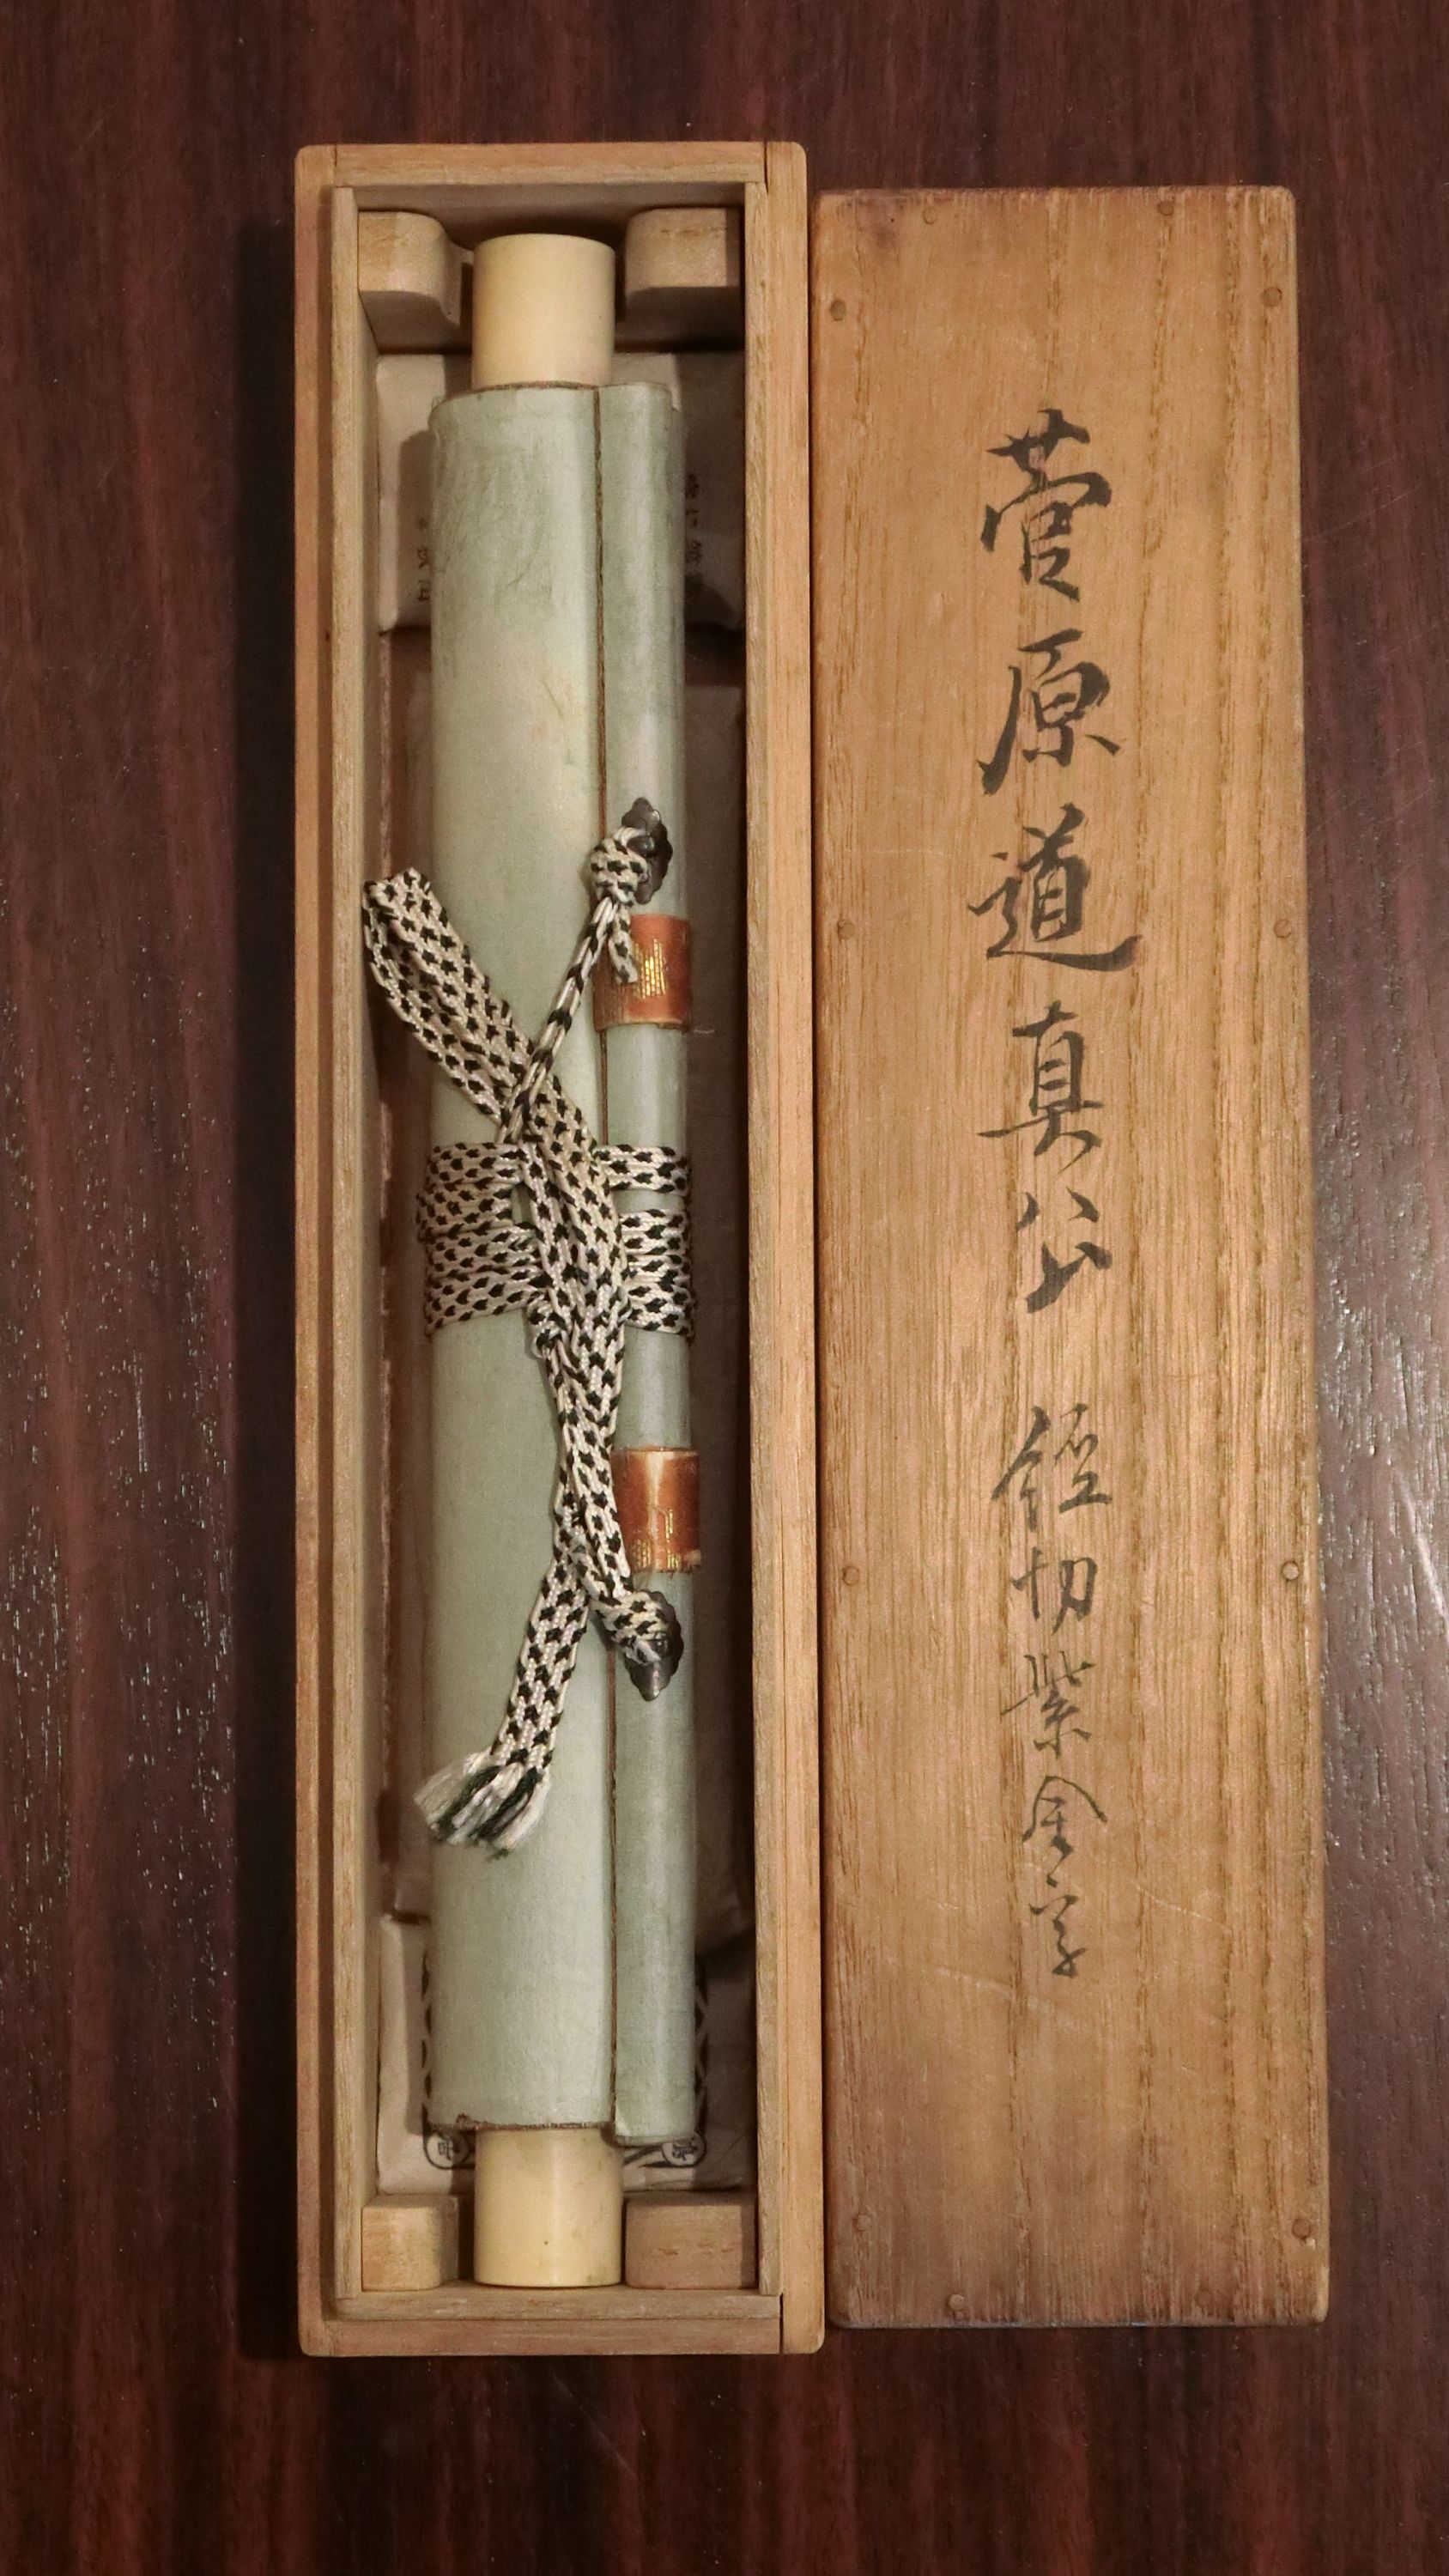 菅原道真公 經切紫金字